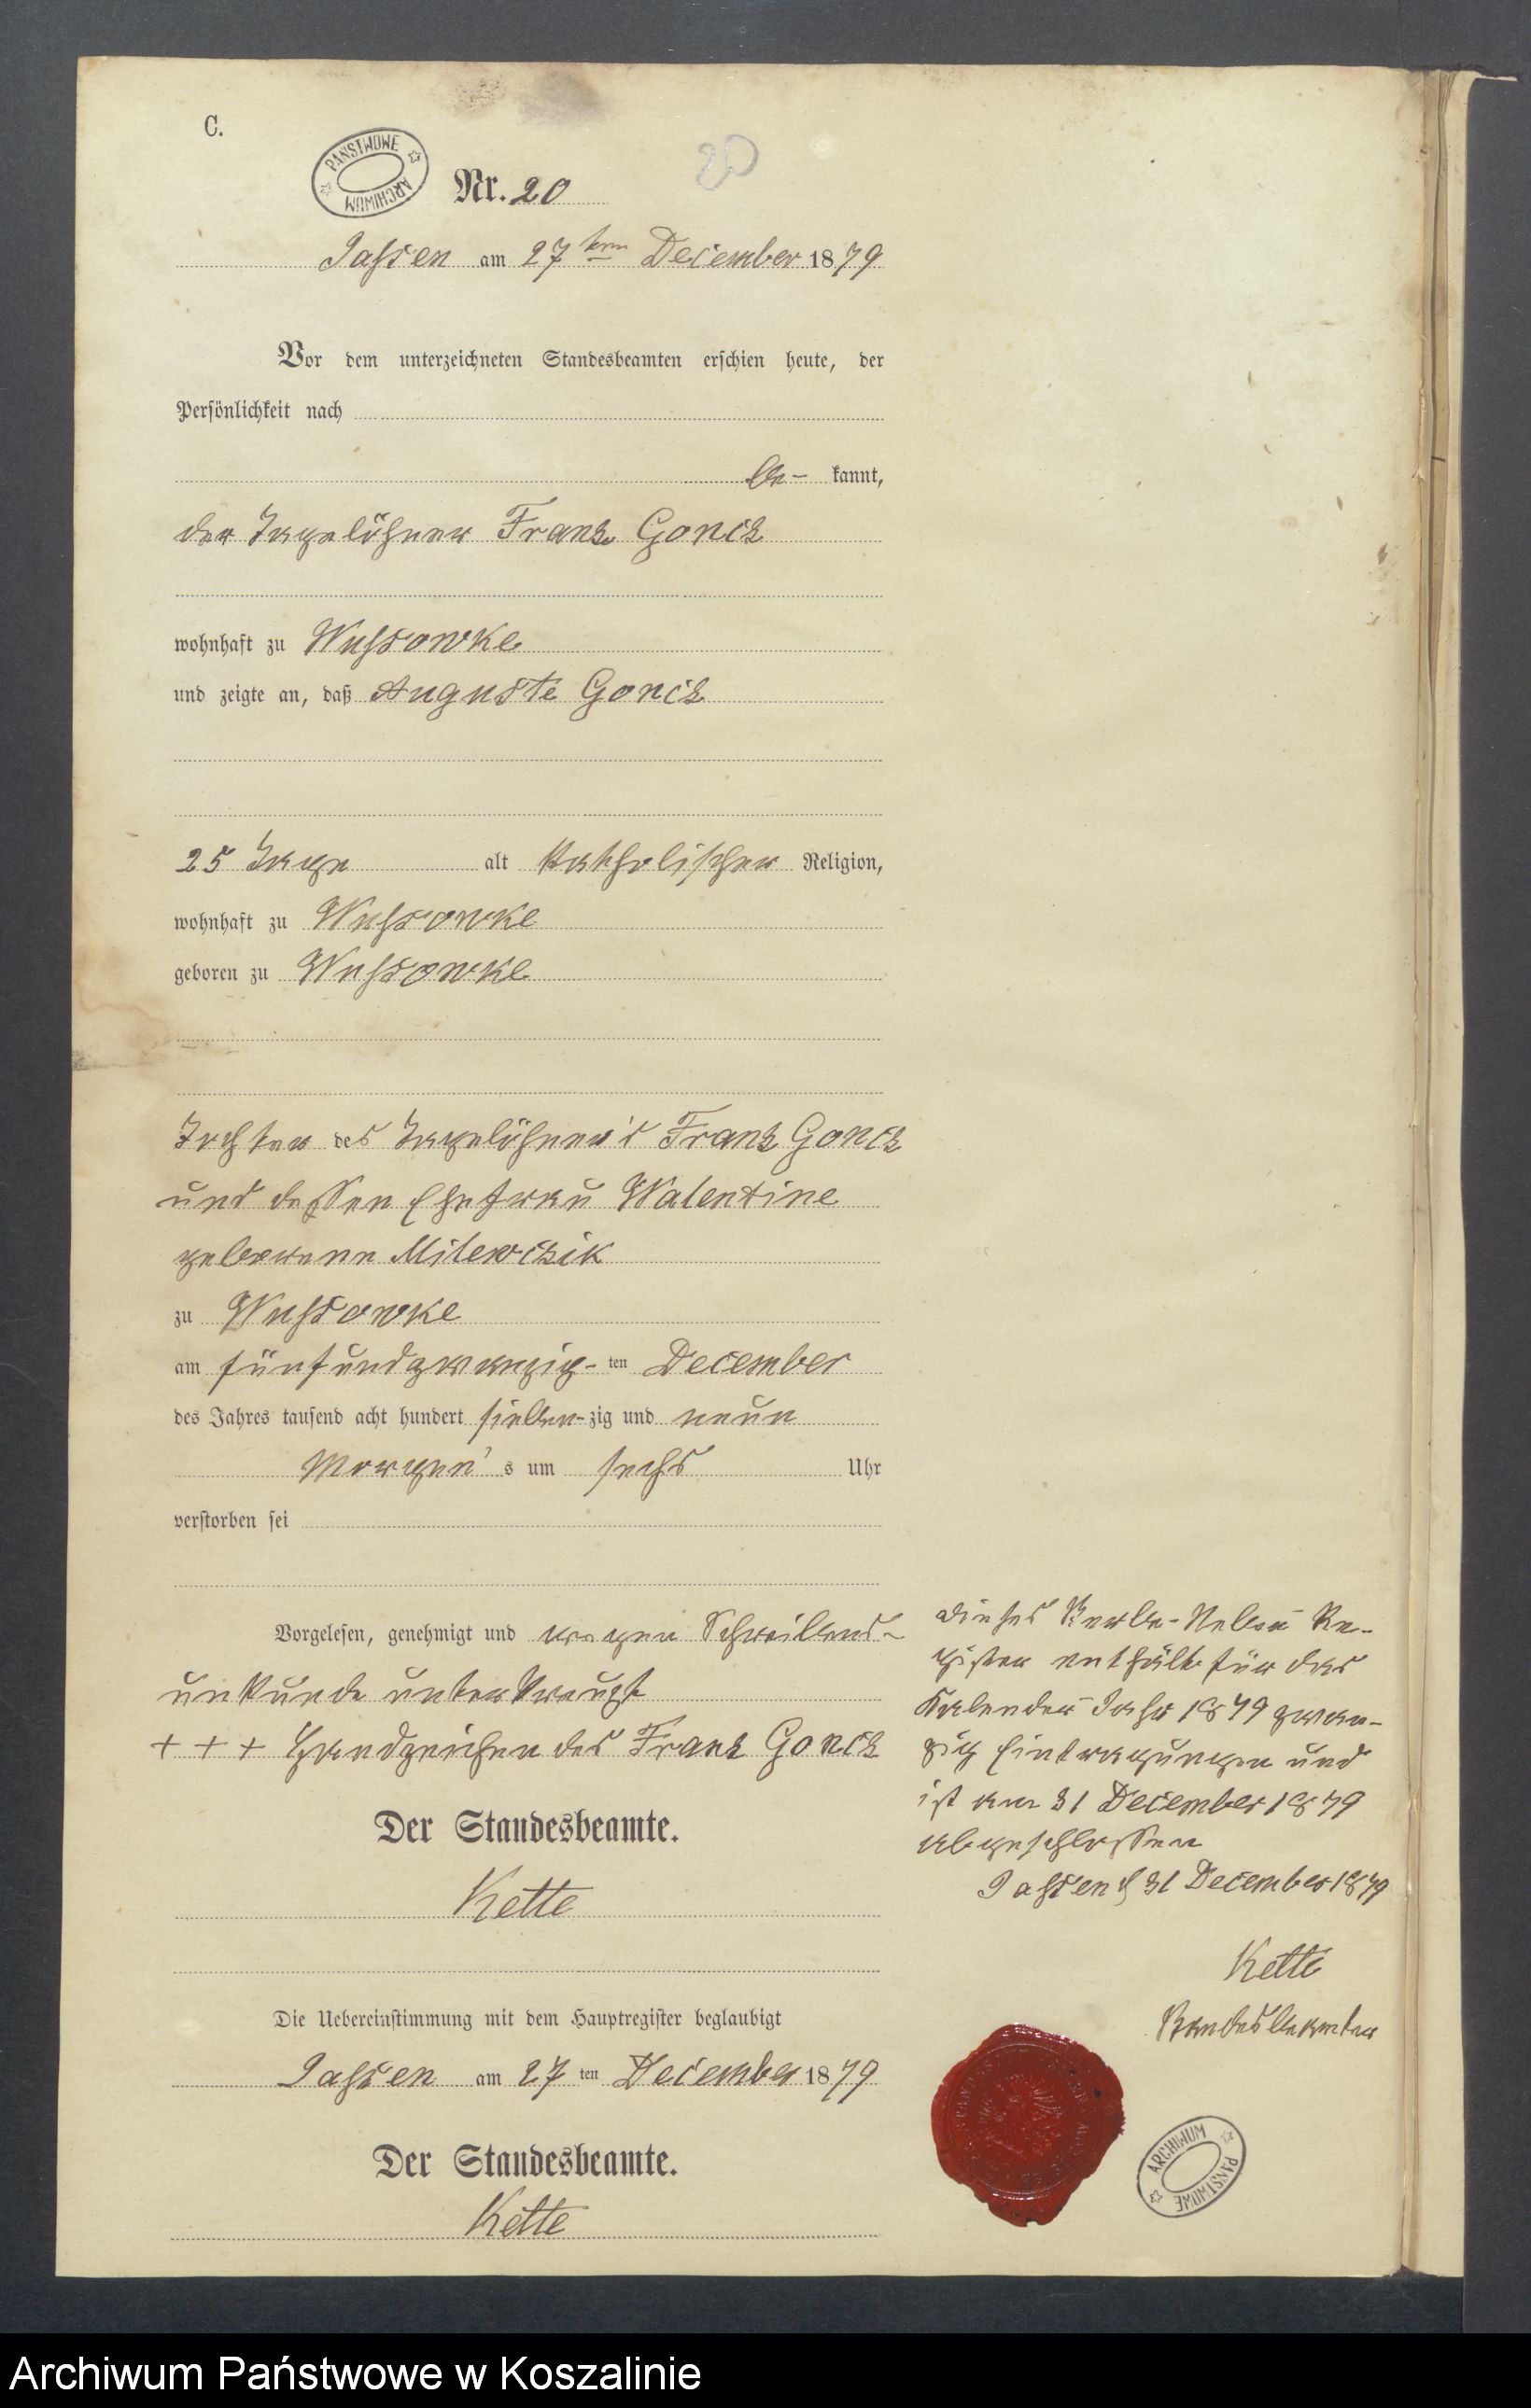 C.
PAŃSTWOWE ARCHIWUM
Nr. 20
20
Jassen am 27ten December 1879
Vor dem unterzeichneten Standesbeamten erschien heute, der
Persönlichkeit nach
be- kannt,
der Tagelöhner Franz Goncz
wohnhaft zu Wussowke
und zeigte an, daß Auguste Goncz
25 Tage alt katholischer Religion,
wohnhaft zu Wussowke
geboren zu Wussowke
Tochter des Tagelöhner's Franz Goncz
und dessen Ehefrau Walentine
geborene Milewczik
zu Wussowke
am fünfundzwanzig- ten December
des Jahres tausend acht hundert sieben- zig und neun
Morgen's um sechs Uhr
verstorben sei
Vorgelesen, genehmigt und wegen Schreibens-
unkunde unterkreuzt
+ + + Handzeichen des Franz Goncz
Der Standesbeamte.
Kette
Die Uebereinstimmung mit dem Hauptregister beglaubigt
Jassen am 27 ten December 1879
Der Standesbeamte.
Kette
Dieses Sterbe-Neben Re-
gister enthält für das
Kalender Jahr 1879 zwan-
zig Eintragungen und
ist am 31 December 1879
abgeschlossen
Jassen d 31 December 1879
Kette
Standesbeamter
ARCHIWUM PAŃSTWOWE
Archiwum Państwowe w Koszalinie